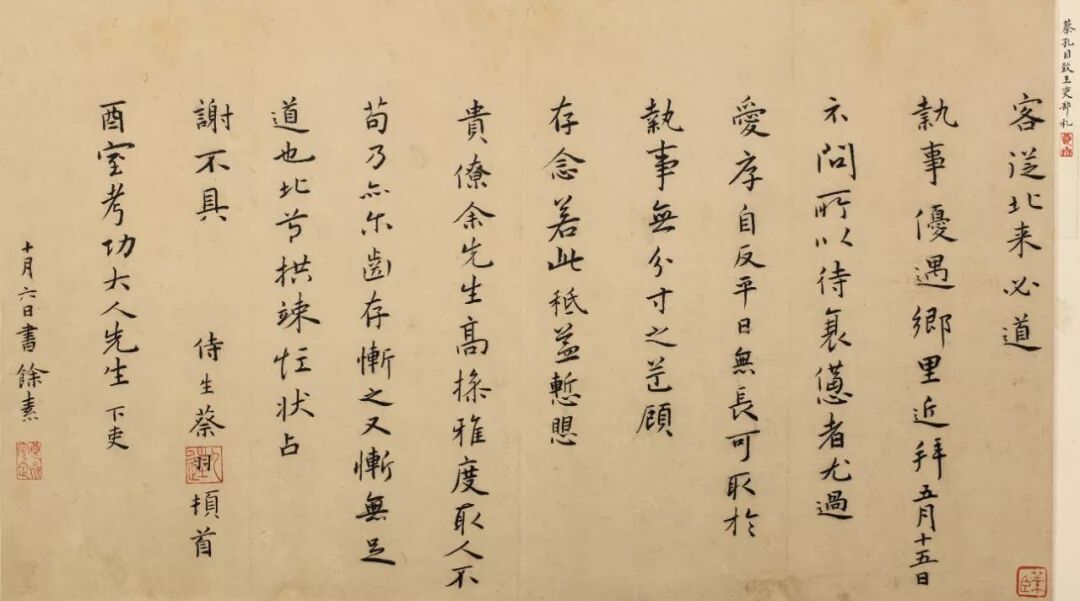 蔡孔目致王吏部札
客從北来必道
執事優遇鄉里近拜五月十五日
示問所以待衰憊者尤過
愛厚自反平日無長可取於
執事無分寸之益顧
存念若此秪益慙恩
貴僚余先生高操雅度取人不
苟乃亦尔齒存慚之又慚無足
道也北兮拱竦怔状占
謝不具
侍生蔡羽頓首
酉室考功大人先生 下吏
十月六日書餘素